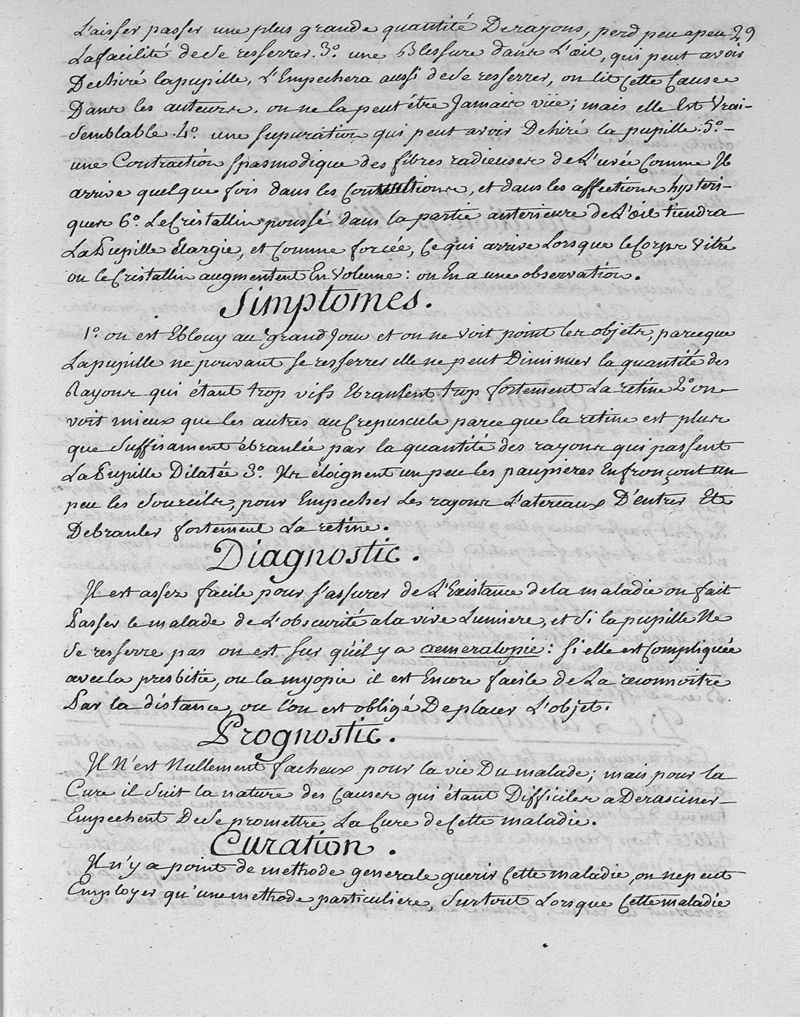 Laisser passer une plus grande quantité De rayons, perd peu a peu 29
La facilité de Se resserrer. 3.º une Blessure dans L'œil, qui peut avoir
Dechiré la pupille, L'Empechera aussi de Se resserrer, on lit Cette Cause
Dans les auteurs. on ne la peut être Jamais vüe; mais elle Est vrai-
Semblable. 4.º une Supuration qui peut avoir Dehiré la pupille. 5.º
une Contraction Spasmodique des fibres radieuses de L'uvée Comme Il
arrive quelque fois dans les Convultions, et dans les affections hysteri-
ques 6.º Le Cristallin poussé dans la partie anterieure de L'œil tiendra
La Pupille Elargie, et Comme forcée, Ce qui arrive Lorsque le Corps Vitré
ou le Cristallin augmentent En Volume: on En a une observation.
Simptomes.
1.º on est Eblouy au grand Jour et on ne Voit point les objets, parceque
La pupille ne pouvant se resserrer elle ne peut Diminuer la quantité des
Rayons qui étant trop vifs Ebranlent trop fortement La retine 2.º on
voit mieux que les autres au Crepuscule parce que la retine est plus
que Suffisament ébranlée par la quantité des rayons qui passent
La Pupille Dilatée 3.º Ils éloignent un peu les paupieres En fronçont un
peu les Sourcils, pour Empecher Les rayons Latereaux D'entrer Et
Debranler fortement La retine.
Diagnostic.
Il est assez facile pour s'assurer de L'Existance de la maladie on fait
Passer le malade de L'obscurité a la vive Lumiere, et Si la pupille Ne
Se resserre pas on est Sur qu'il y a aemeralopie: Si elle est Compliquée
avec la presbitie, ou la myopie il est Encore facile de La reconnoitre
Par la distance, ou l'on est obligé De placer L'objet.
Prognostic.
Il N'est Nullement facheux pour la vie Du malade; mais pour la
Cure il Suit la nature des Causes qui étant Difficiles a Deraciner
Empechent De Se promettre La Cure de Cette maladie.
Curation.
Il n'y a point de methode generale guerir Cette maladie, on ne peut
Employer qu'une methode particuliere, Surtout Lorsque Cette maladie